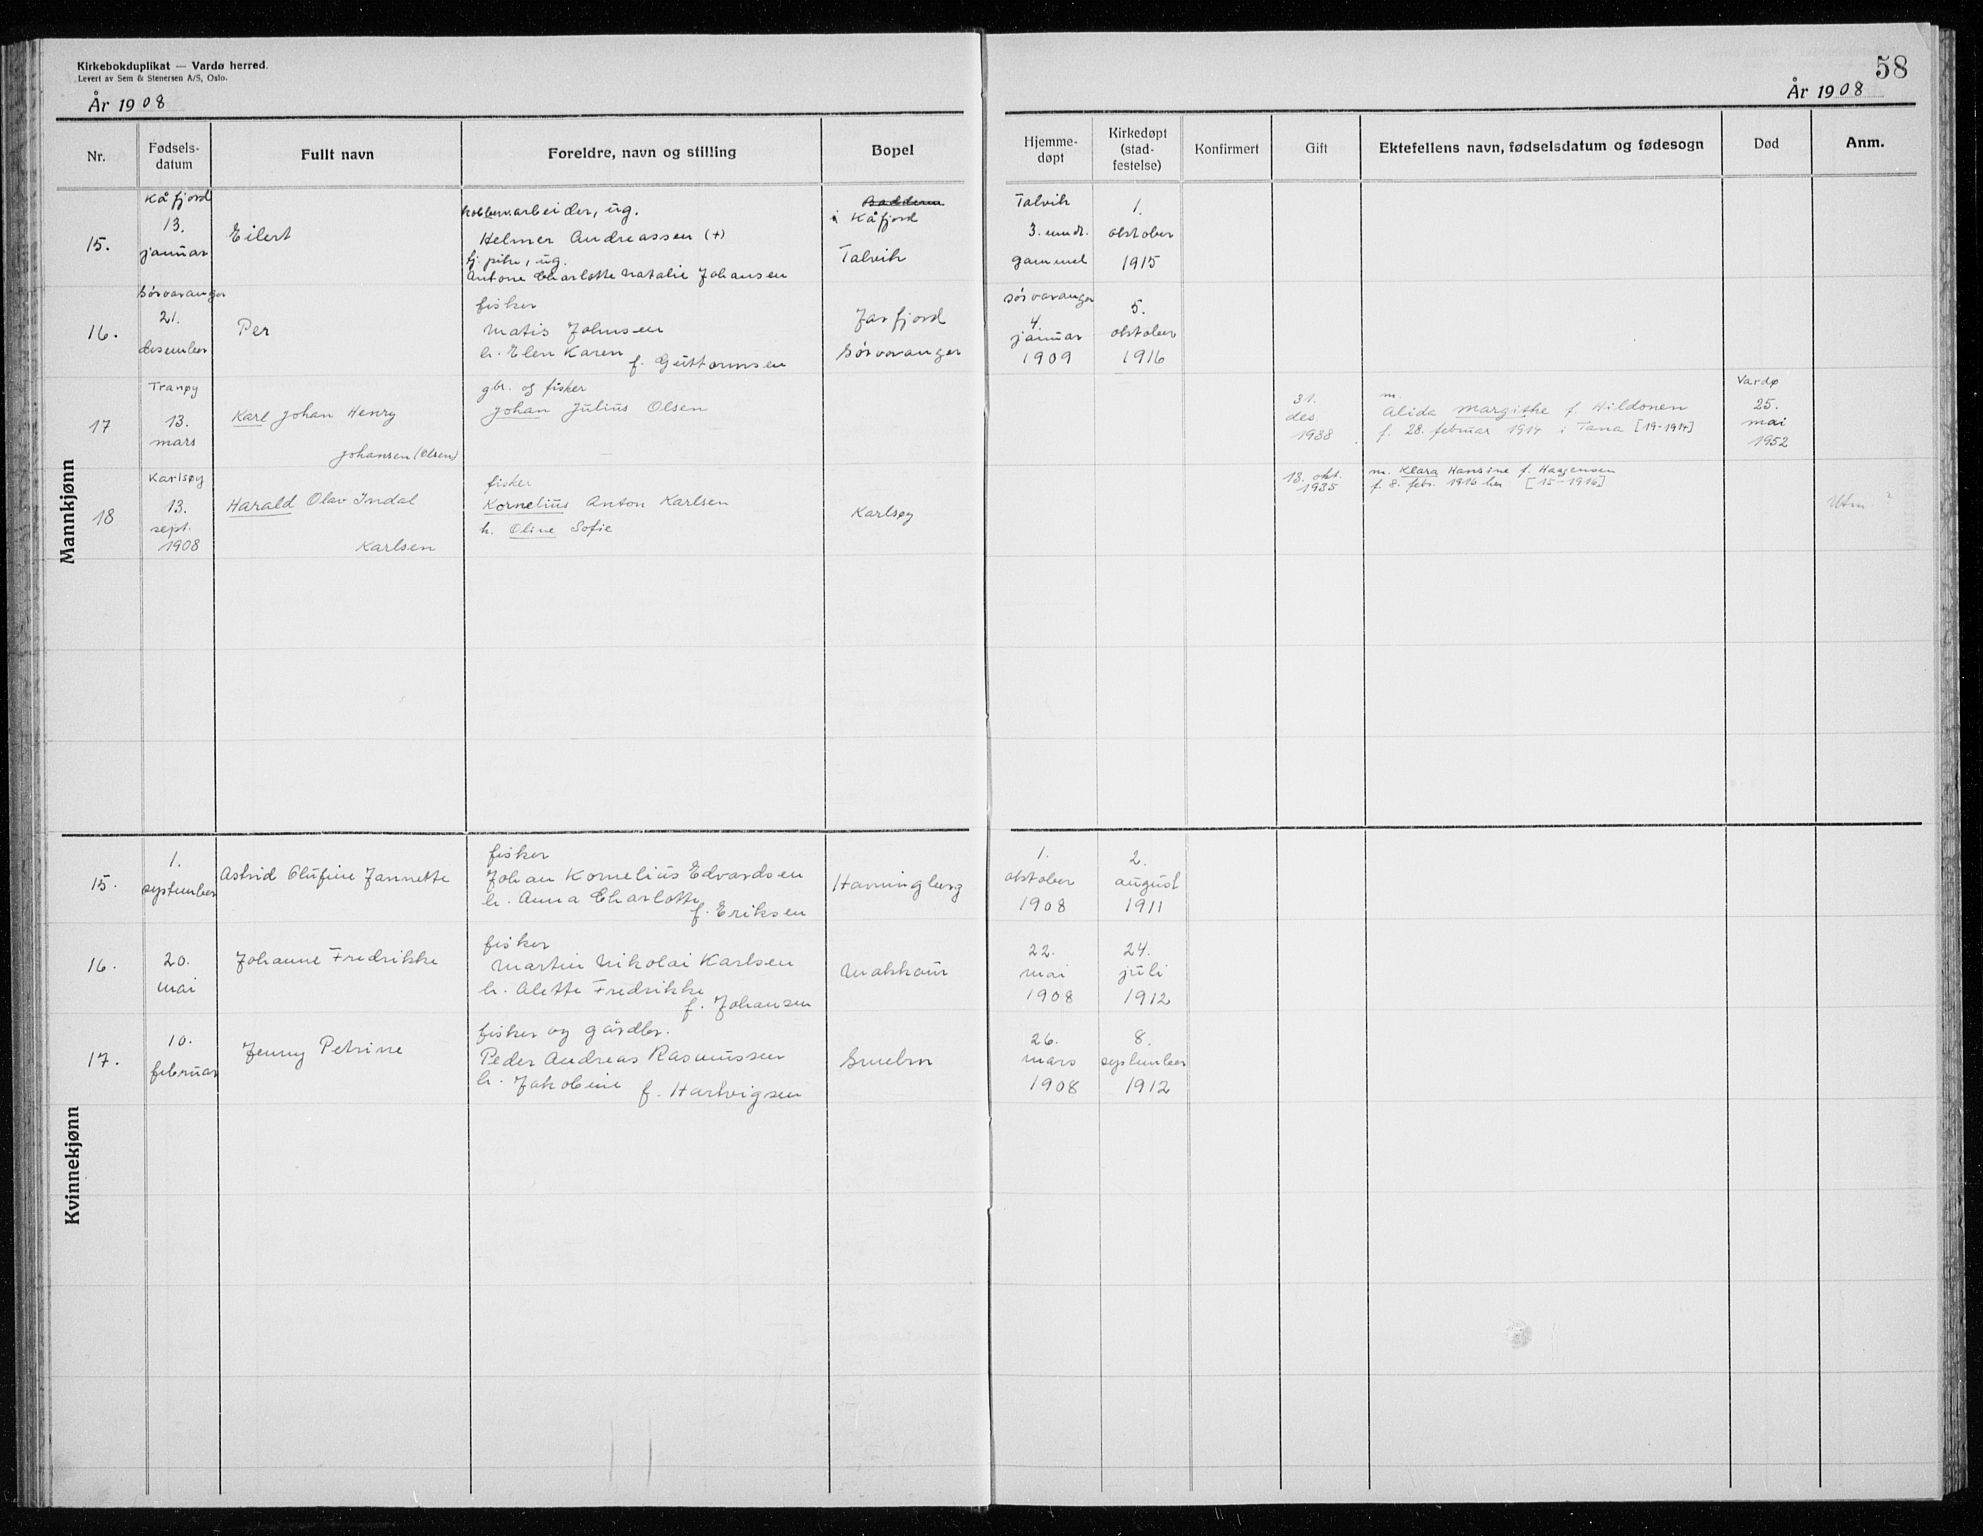 Kirkebokduplikat — Vardø herred.
Levert av Sem & Stenersen A/S, Oslo.
År 1908
58
År 1908
Nr.
Fødsels-
datum
Fullt navn
Foreldre, navn og stilling
Bopel
Hjemme-
døpt
Kirkedøpt
(stad-
festelse)
Konfirmert
Gift
Ektefellens navn, fødselsdatum og fødesogn
Død
Anm.
Mannkjønn
15.
Kåfjord
13.
januar
Eilert
kobberarbeider, ug.
Helmer Andreassen (+)
tj. pike, ug.
Antone Charlotte Natalie Johansen
Badderen
i Kåfjord
Talvik
Talvik
3. mndr.
gammel
1.
oktober
1915
16.
Sørvaranger
21.
desember
Per
fisker
Matis Johnsen
h. Elen Karen
f. Guttormsen
Jarfjord
Sørvaranger
Sørvaranger
4.
januar
1909
5.
oktober
1916
17
Tranøy
13.
mars
Karl Johan Henry
Johansen (Olsen)
gbr. og fisker
Johan Julius Olsen
31.
des.
1938
m.
Alida Margithe f. Hildonen
f. 28. februar 1914 i Tana [19-1914]
Vardø
25.
mai
1952
18
Karlsøy
13.
sept.
1908
Harald Olav Indal
Karlsen
fisker
Kornelius Anton Karlsen
h. Oline Sofie
Karlsøy
13. okt.
1935
m. Klara Hansine f. Haagensen
f. 8. febr. 1916 her [15-1916]
Utm. ?
Kvinnekjønn
15.
1.
september
Astrid Olufine Jannette
fisker
Johan Kornelius Edvardsen
h. Anna Charlotte
f. Eriksen
Havningberg
1.
oktober
1908
2.
august
1911
16.
20.
mai
Johanne Fredrikke
fisker
Martin Nikolai Karlsen
h. Alette Fredrikke
f. Johansen
Makkaur
22.
mai
1908
24.
juli
1912
17.
10.
februar
Jenny Petrine
fisker og gårdbr.
Peder Andreas Rasmussen
h. Jakobine
f. Hartvigsen
Smelror
26.
mars
1908
8.
september
1912